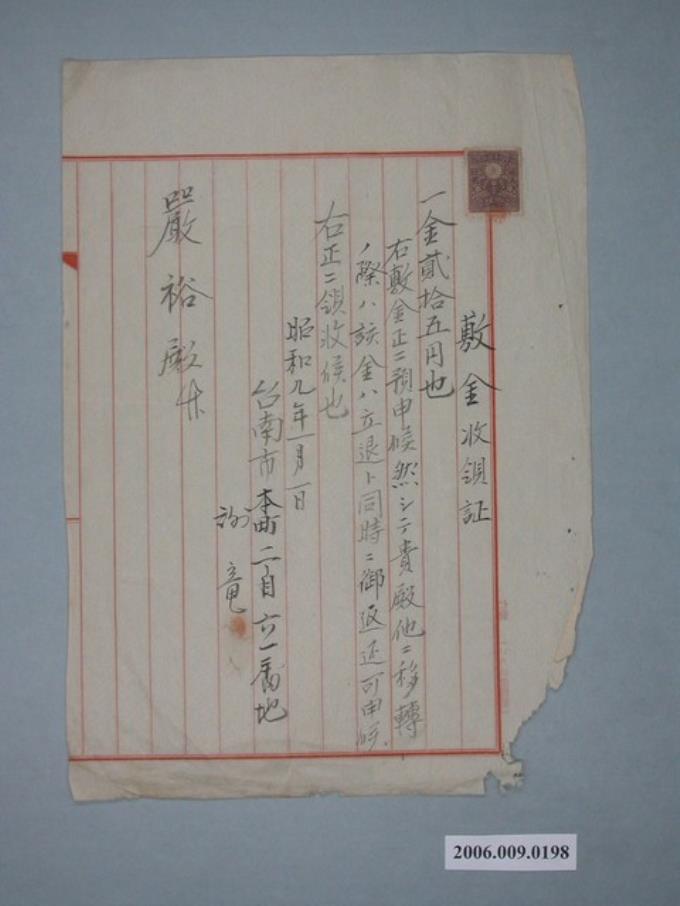 敷金收領証
一金貳拾五円也
右敷金正ニ預申候然シテ貴殿他ニ移轉
ノ際ハ該金ハ立退ト同時ニ御返還可申候、
右正ニ領收候也
昭和九年一月一日
台南市本町二ノ目六一番地
謝竜
嚴裕殿
2006.009.0198